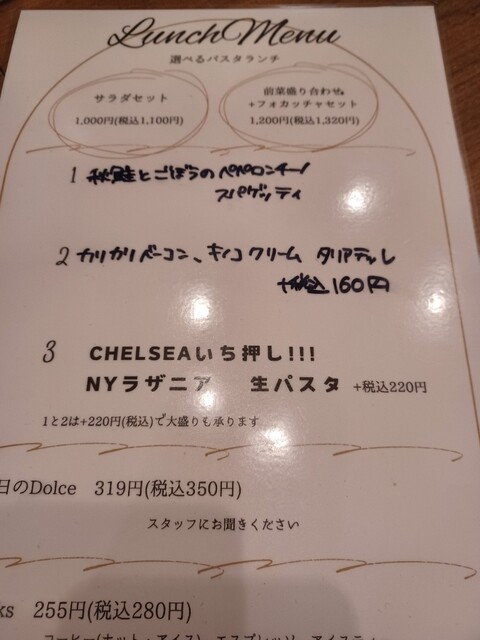 Lunch Menu
選べるパスタランチ
サラダセット
1,000円(税込1,100円)
前菜盛り合わせ
+フォカッチャセット
1,200円(税込1,320円)
1 秋鮭とごぼうのペペロンチーノ
スパゲッティ
2 カリカリベーコン、キノコクリーム タリアテッレ
+税込160円
3 CHELSEAいち押し!!!
NYラザニア 生パスタ +税込220円
1と2は+220円(税込)で大盛りも承ります
日のDolce 319円(税込350円)
スタッフにお聞きください
ks 255円(税込280円)
コーヒー(ホット・アイス) エスプレッソ アイスティ